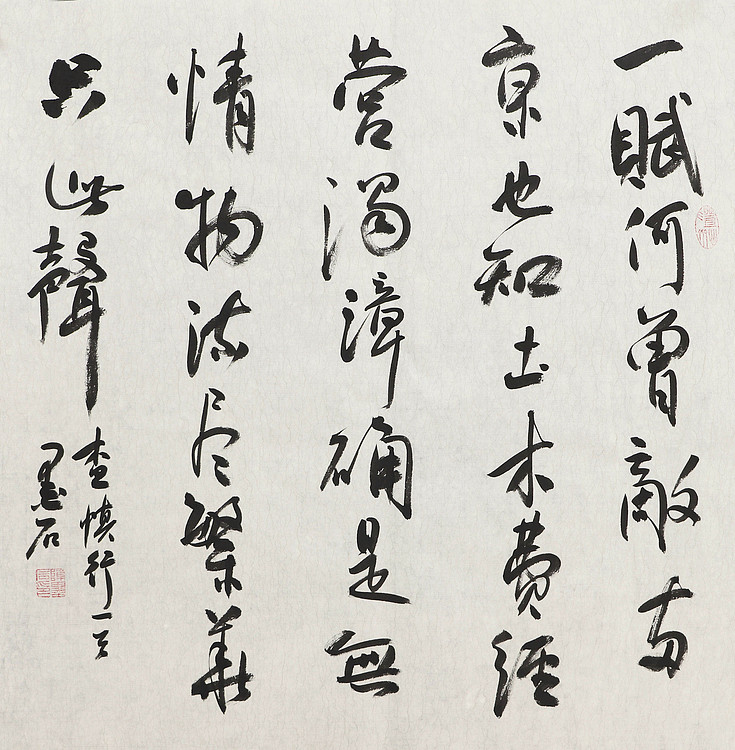 一賦何曾敵兩
京也知土木费經
营濁漳确是無
情物流尽繁華
只此聲
查慎行一首
墨石